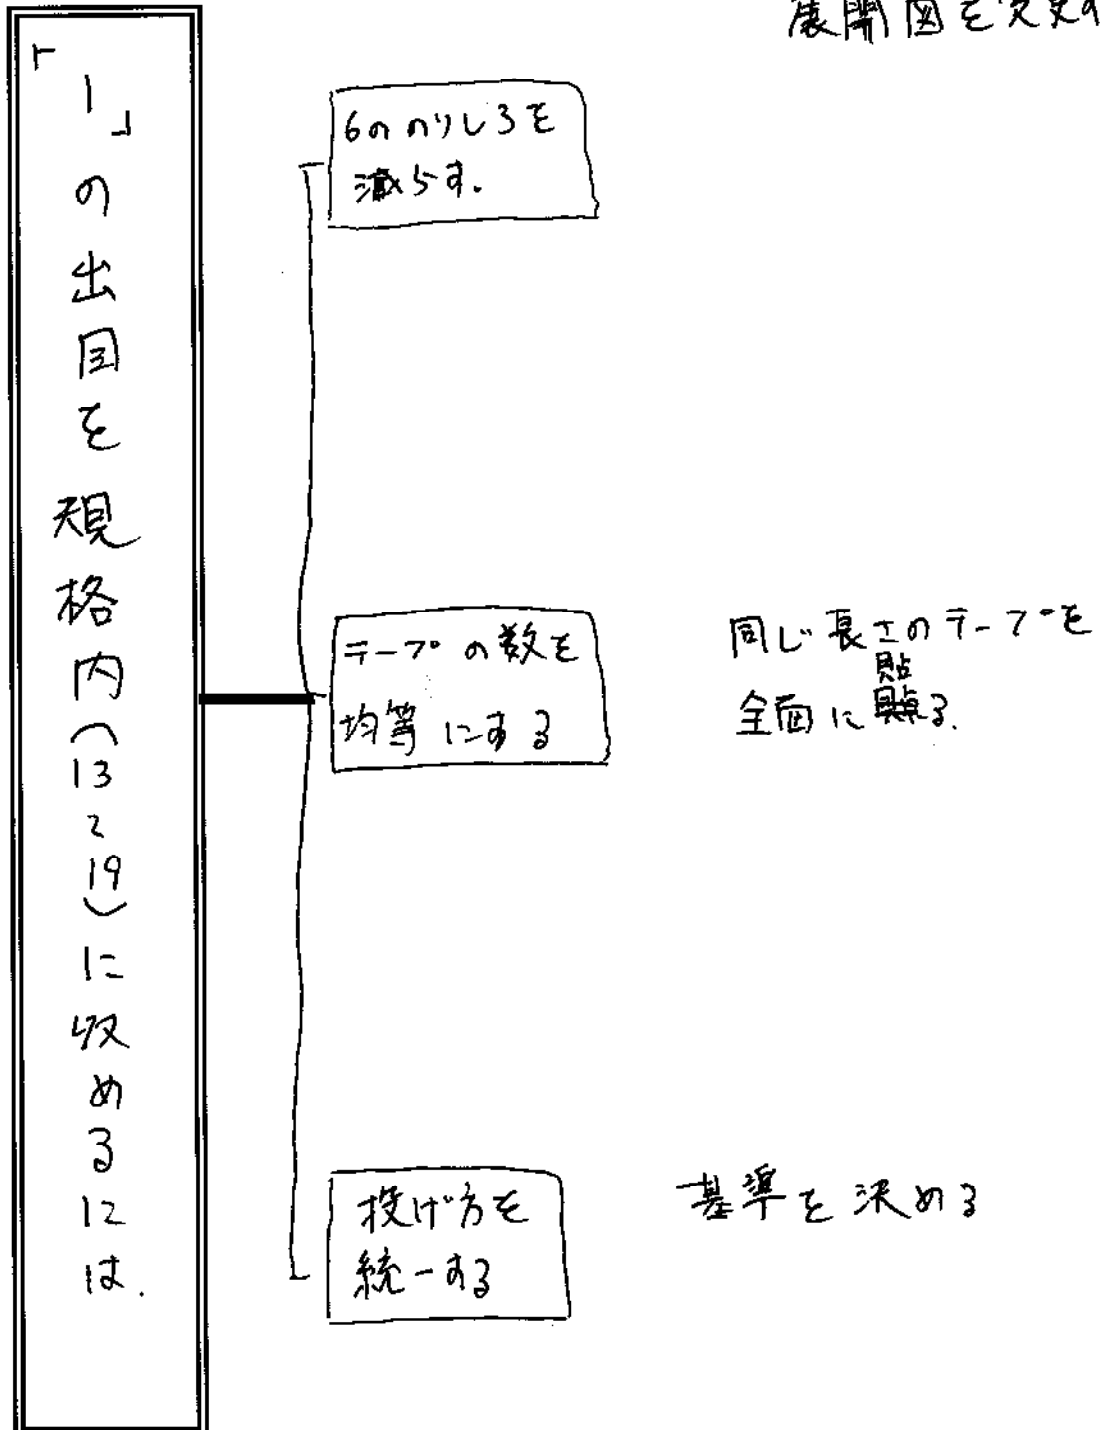 展開図を
「1」の出目を規格内(13〜19)に収めるには.
6ののりしろを
減らす.
テープの数を
均等にする
同じ長さのテープを
全面に貼る.
投げ方を
統一する
基準を決める